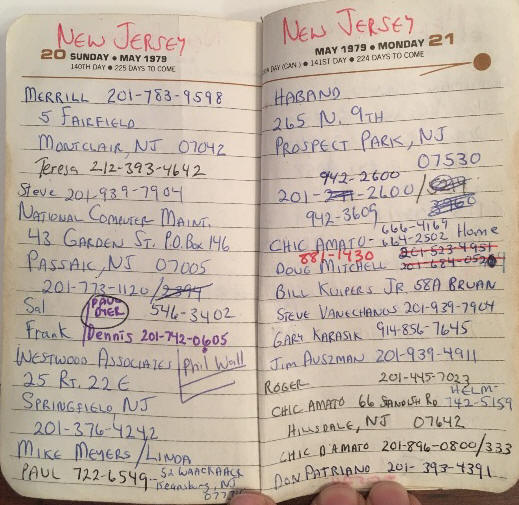 NEW JERSEY
20 SUNDAY • MAY 1979
140TH DAY • 225 DAYS TO COME
MERRILL 201-783-9598
5 FAIRFIELD
MONTCLAIR, NJ 07042
Teresa 212-393-4642
Steve 201-939-7904
NATIONAL COMPUTER MAINT.
43 GARDEN ST. P.O. BOX 146
PASSAIC, NJ 07005
201-773-1120/2394
Sal PAUL DYER 546-3402
Frank Dennis 201-742-0605
WESTWOOD ASSOCIATES Phil Wall
25 RT. 22 E
SPRINGFIELD, NJ
201-376-4242
MIKE MEYERS/LINDA
PAUL 722-6549 - 52 WAACKAACK
Keansburg, NJ
NEW JERSEY
MAY 1979 • MONDAY 21
DAY (CAN.) • 141ST DAY • 224 DAYS TO COME
HABAND
265 N. 9TH
PROSPECT PARK, NJ
07530
942-2600
201-2600/
942-3609
CHIC AMATO - 666-4169
664-2502 Home
881-1430 201-523-4951
DOUG MITCHELL 201-684-052
BILL KUIPERS JR. 58A BRUAN
STEVE VANECHANOS 201-939-7904
GARY KARASIK 914-856-7645
JIM AUSZMAN 201-939-4911
ROGER 201-445-7023
HELM-
CHIC AMATO 66 STANDISH RD 742-5159
HILLSDALE, NJ 07642
CHIC D'AMATO 201-896-0800/333
DON PATRIANO 201-393-4391